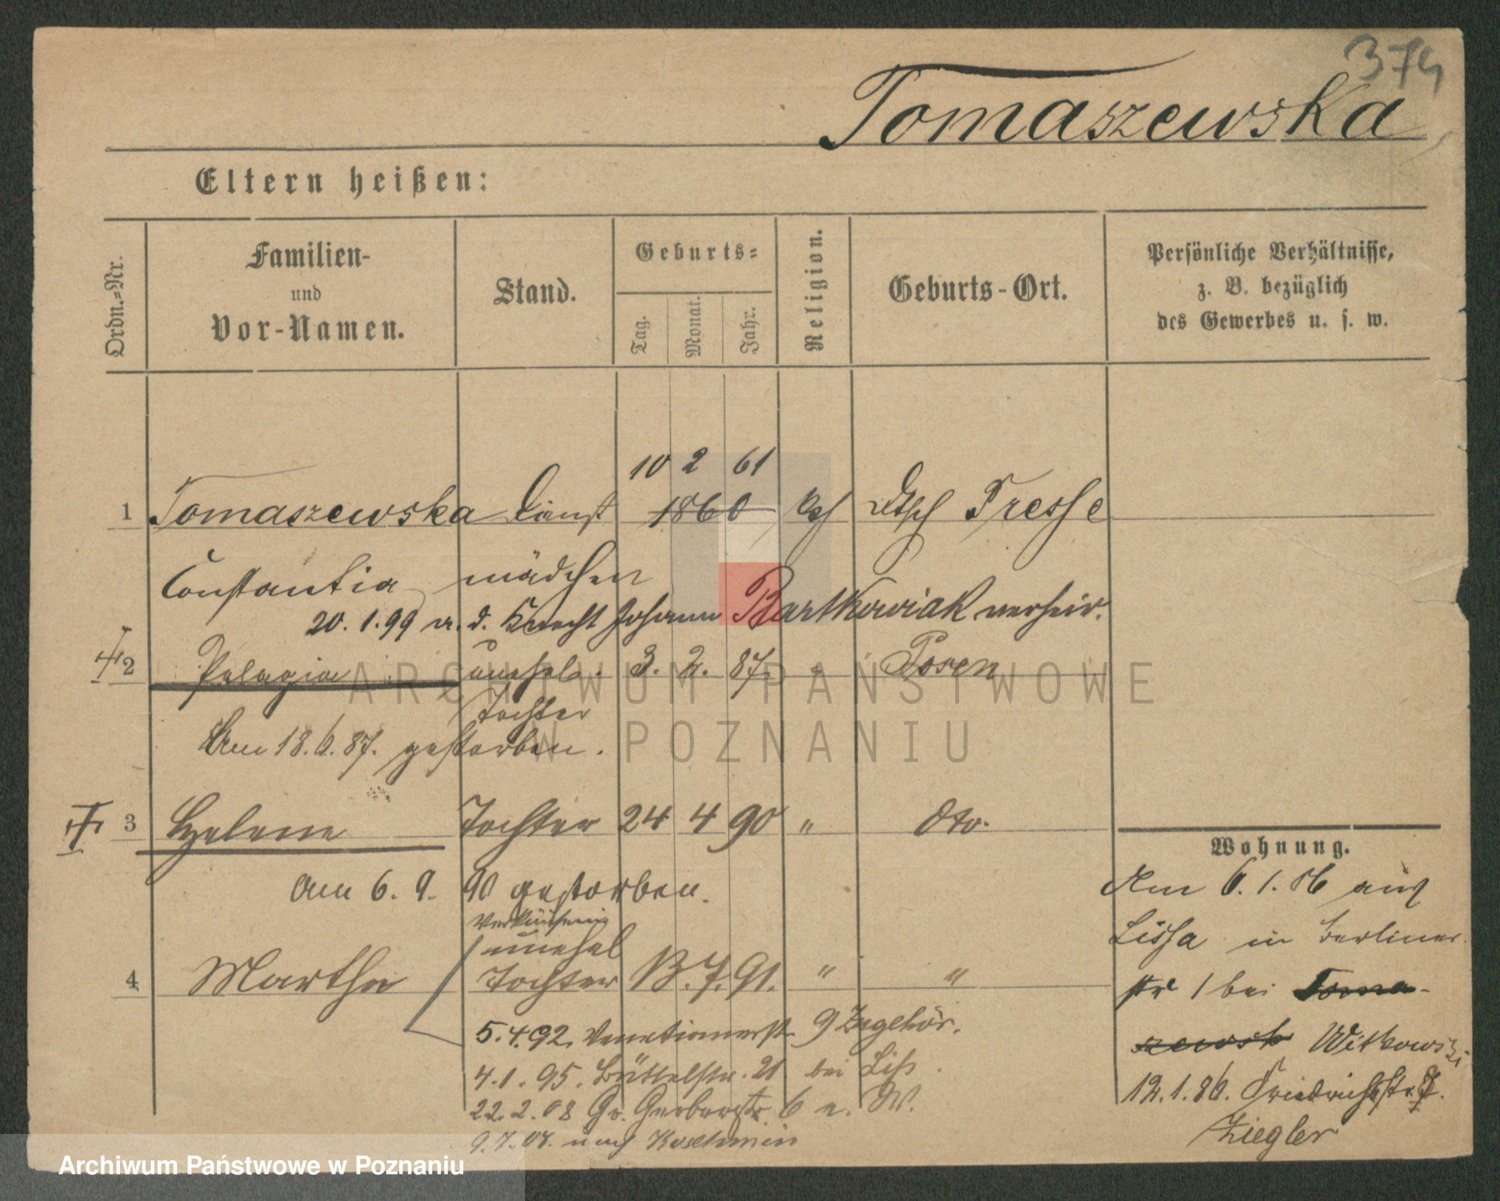 374
Tomaszewska
Eltern heißen:
Ordn.-Nr.
Familien- und Vor-Namen.
Stand.
Geburts-
Tag.
Monat.
Jahr.
Religion.
Geburts-Ort.
Persönliche Verhältnisse, z. B. bezüglich des Gewerbes u. s. w.
10 2 61
1 Tomaszewska Dienst 1860 kath Dtsch Presse
Constantia mädchen
20.1.99 m. d. Knecht Johann Bartkowiak verheir.
2 Pelagia unehel. 3. 2. 87. " Posen
Tochter
Am 18.6.87. gestorben.
3 Helene Tochter 24 4 90 " dto.
am 6. 9. 90 gestorben.
unehel
4 Martha Tochter 13. 7. 91. " "
5.4.92. Venetianerstr. 9
4.1.95. Büttelstr. 21 bei
22.2.08 Gr. Gerberstr. 6
9.7.08. nach Koschmin
Wohnung.
Am 6.1.86 aus
Lissa in Berliner
str 1 bei Toma-
szewsk Witkowski
12.1.86. Friedrichstr. 7.
Ziegler
ARCHIWUM PAŃSTWOWE
W POZNANIU
Archiwum Państwowe w Poznaniu